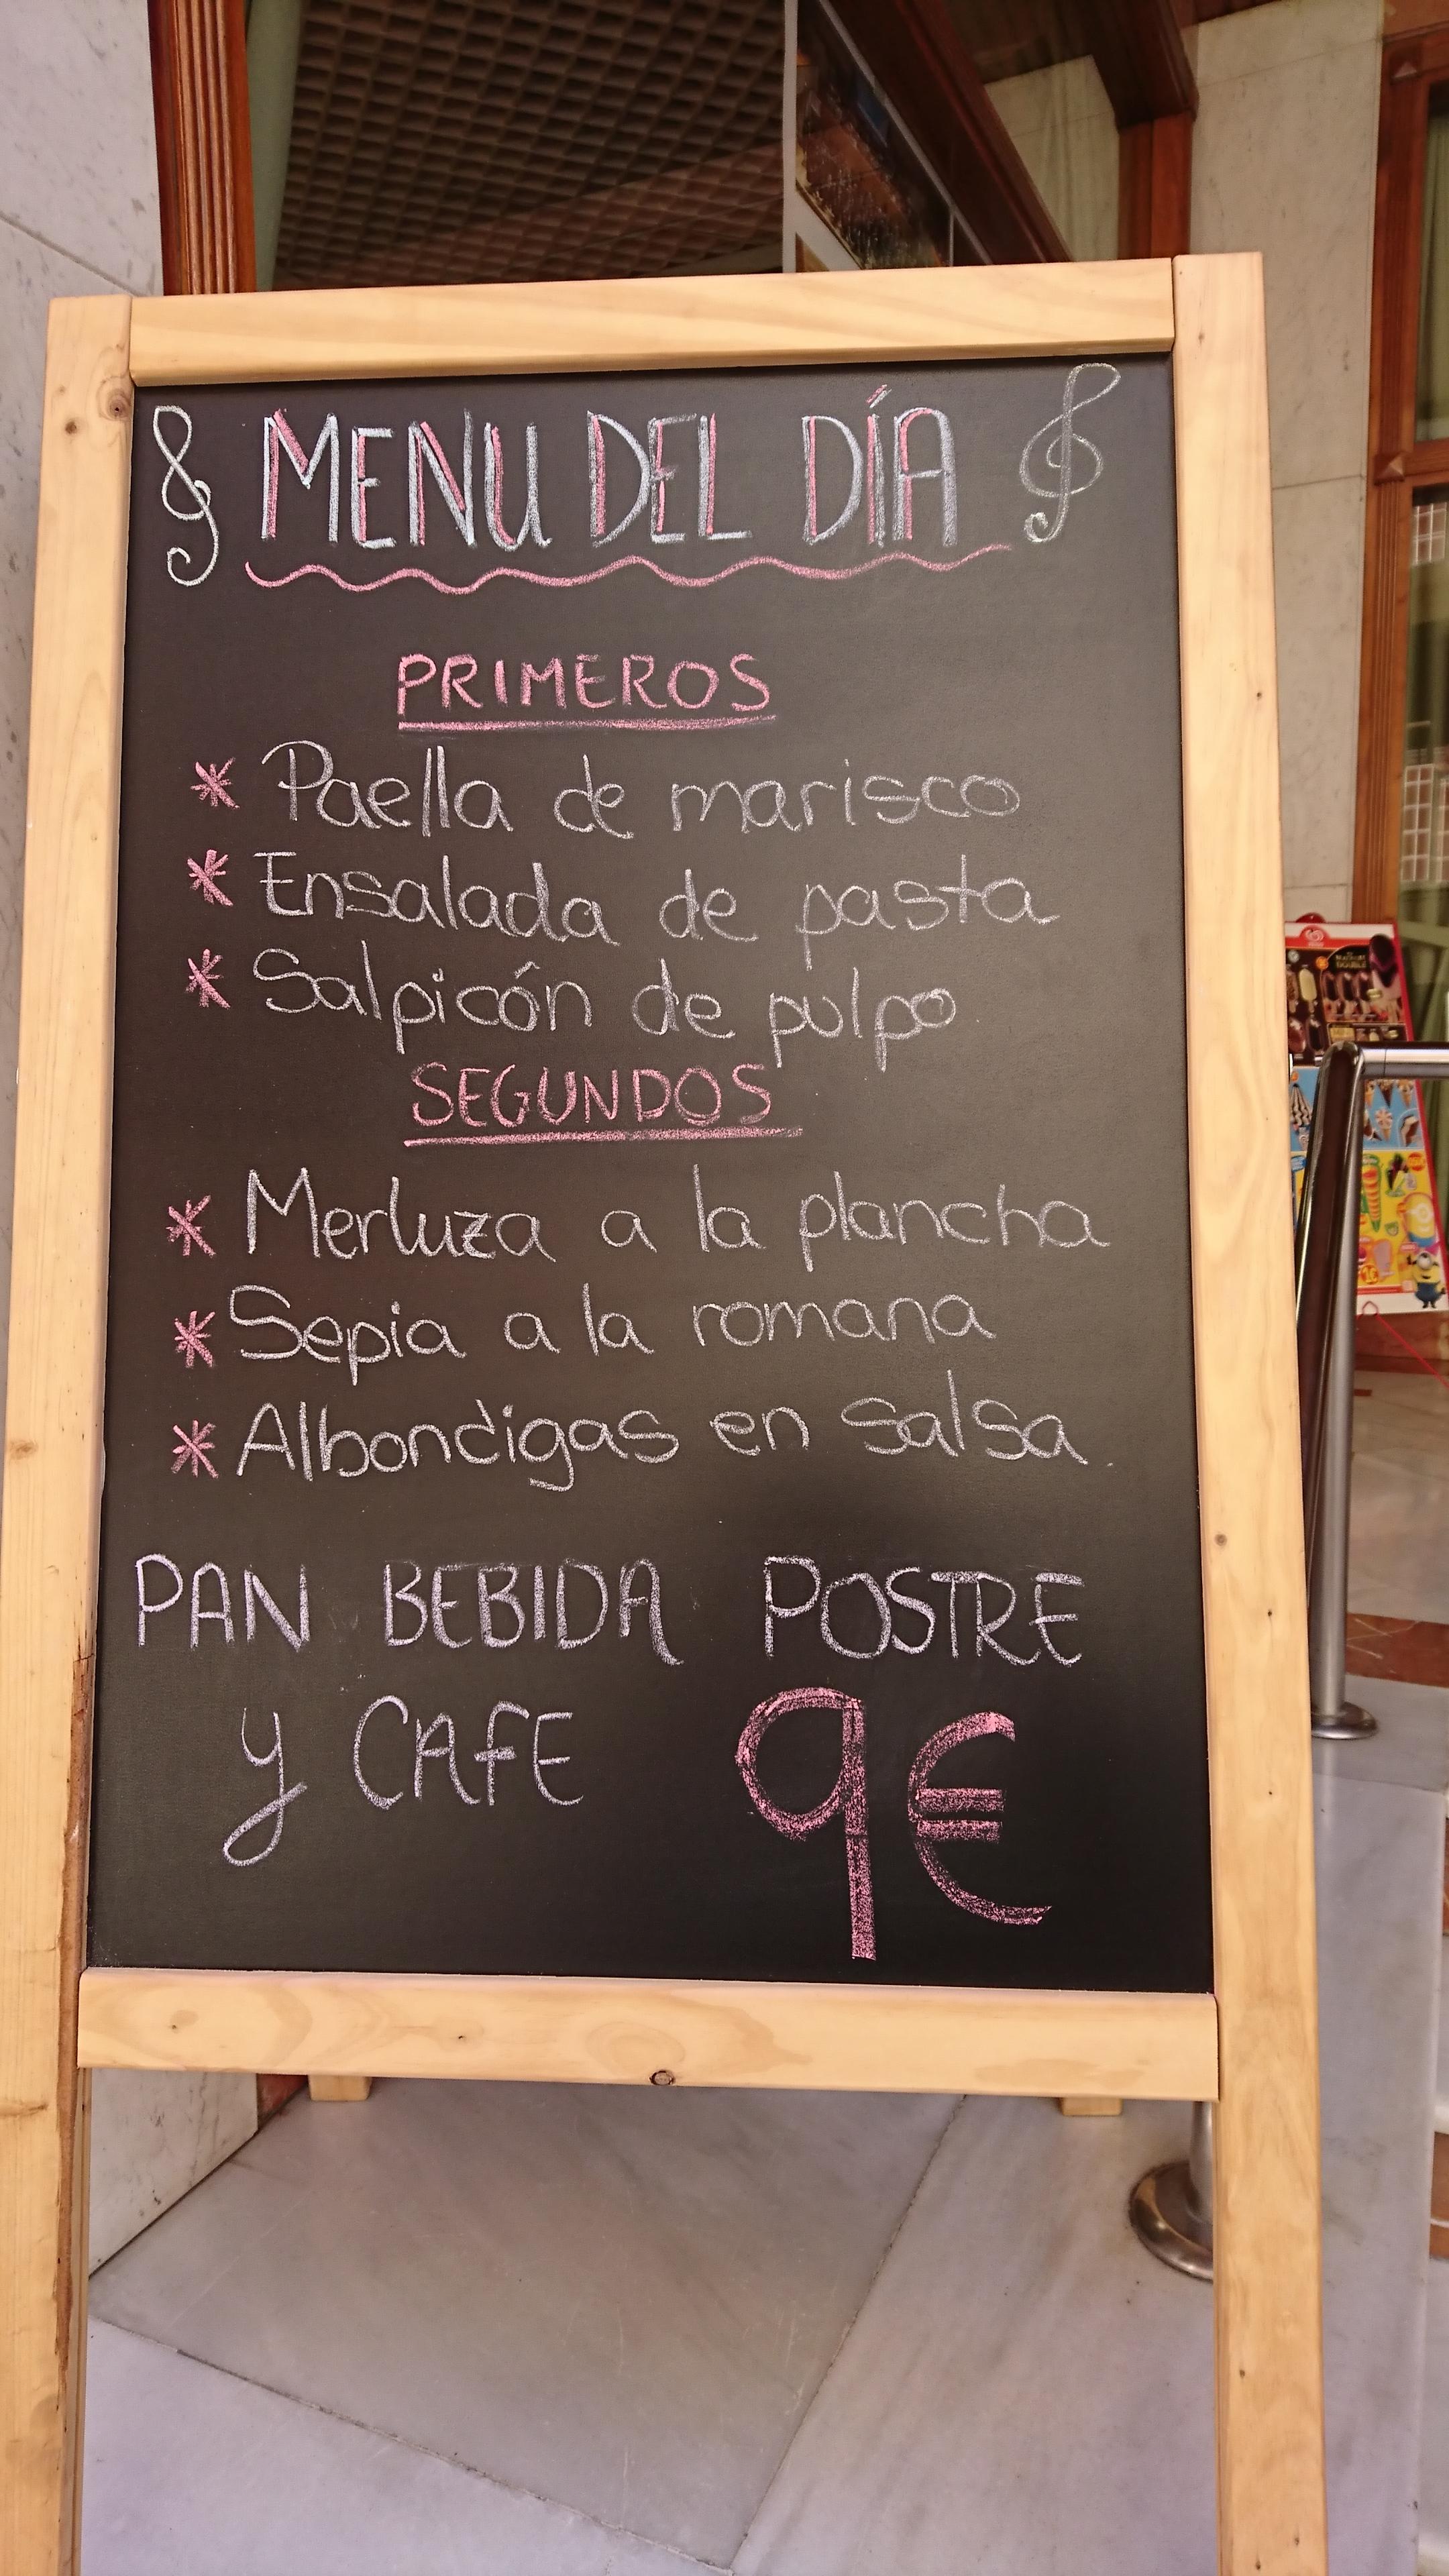 MENU DEL DÍA
PRIMEROS
* Paella de marisco
* Ensalada de pasta
* Salpicón de pulpo
SEGUNDOS
* Merluza a la plancha
* Sepia a la romana
* Albondigas en salsa
PAN BEBIDA POSTRE
y CAFE 9€